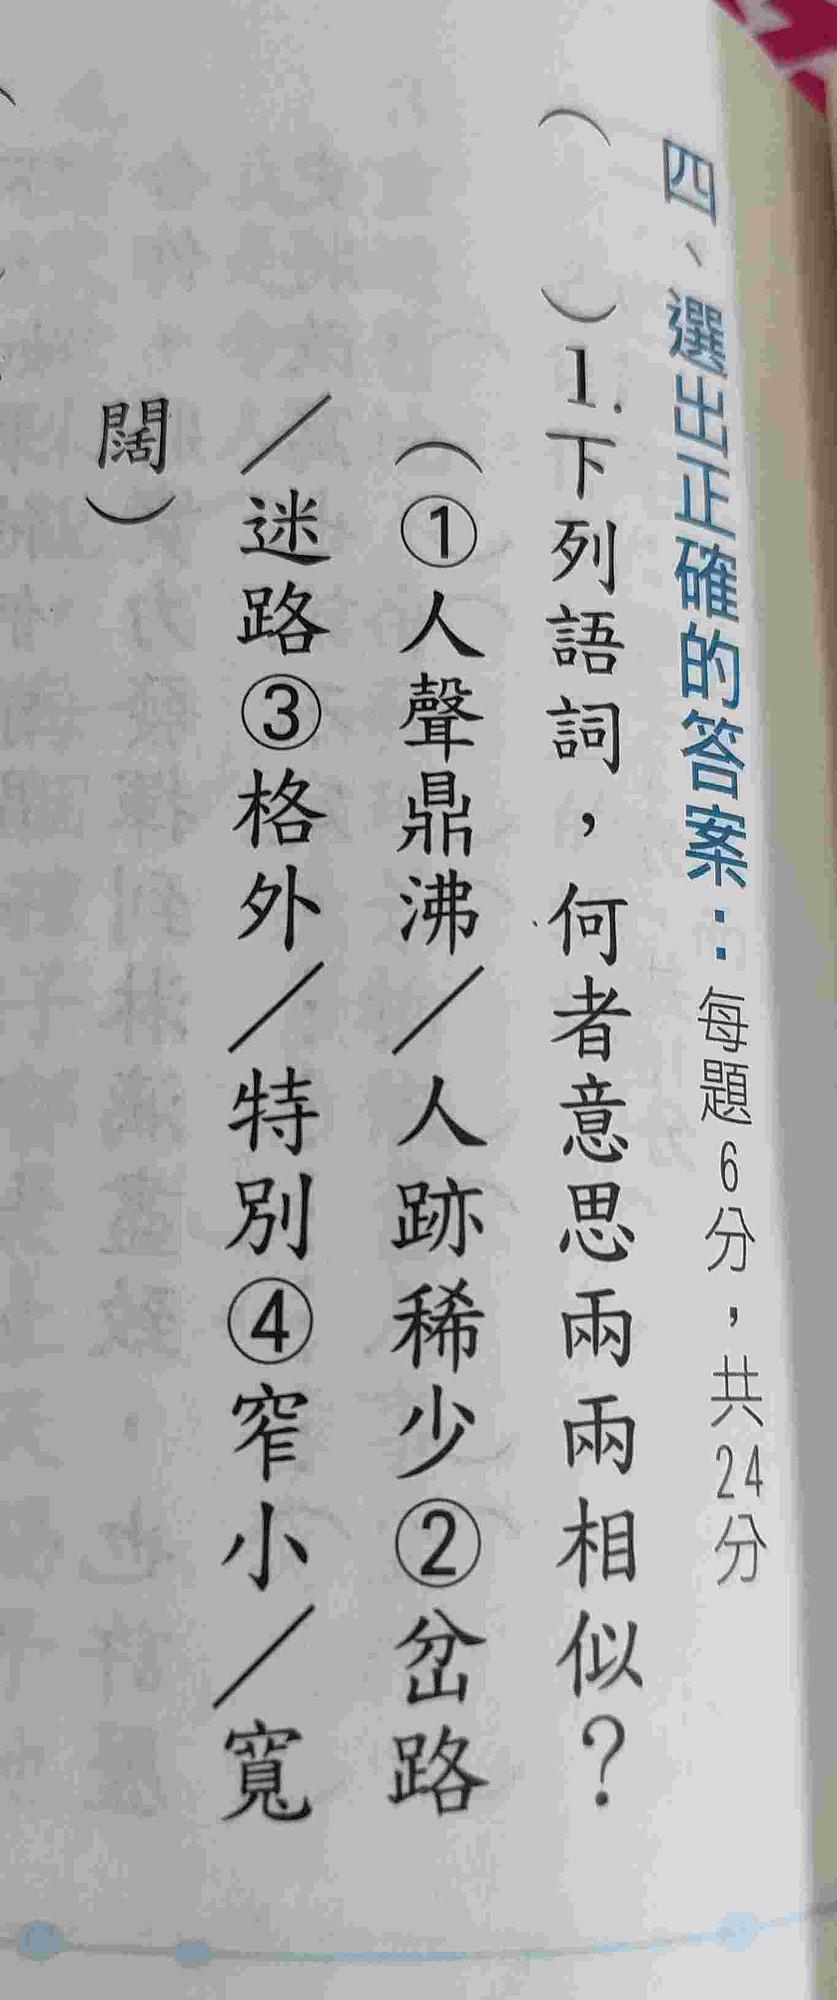 四、選出正確的答案：每題6分，共24分
（　）1.下列語詞，何者意思兩兩相似？
（①人聲鼎沸／人跡稀少②岔路
／迷路③格外／特別④窄小／寬
闊）